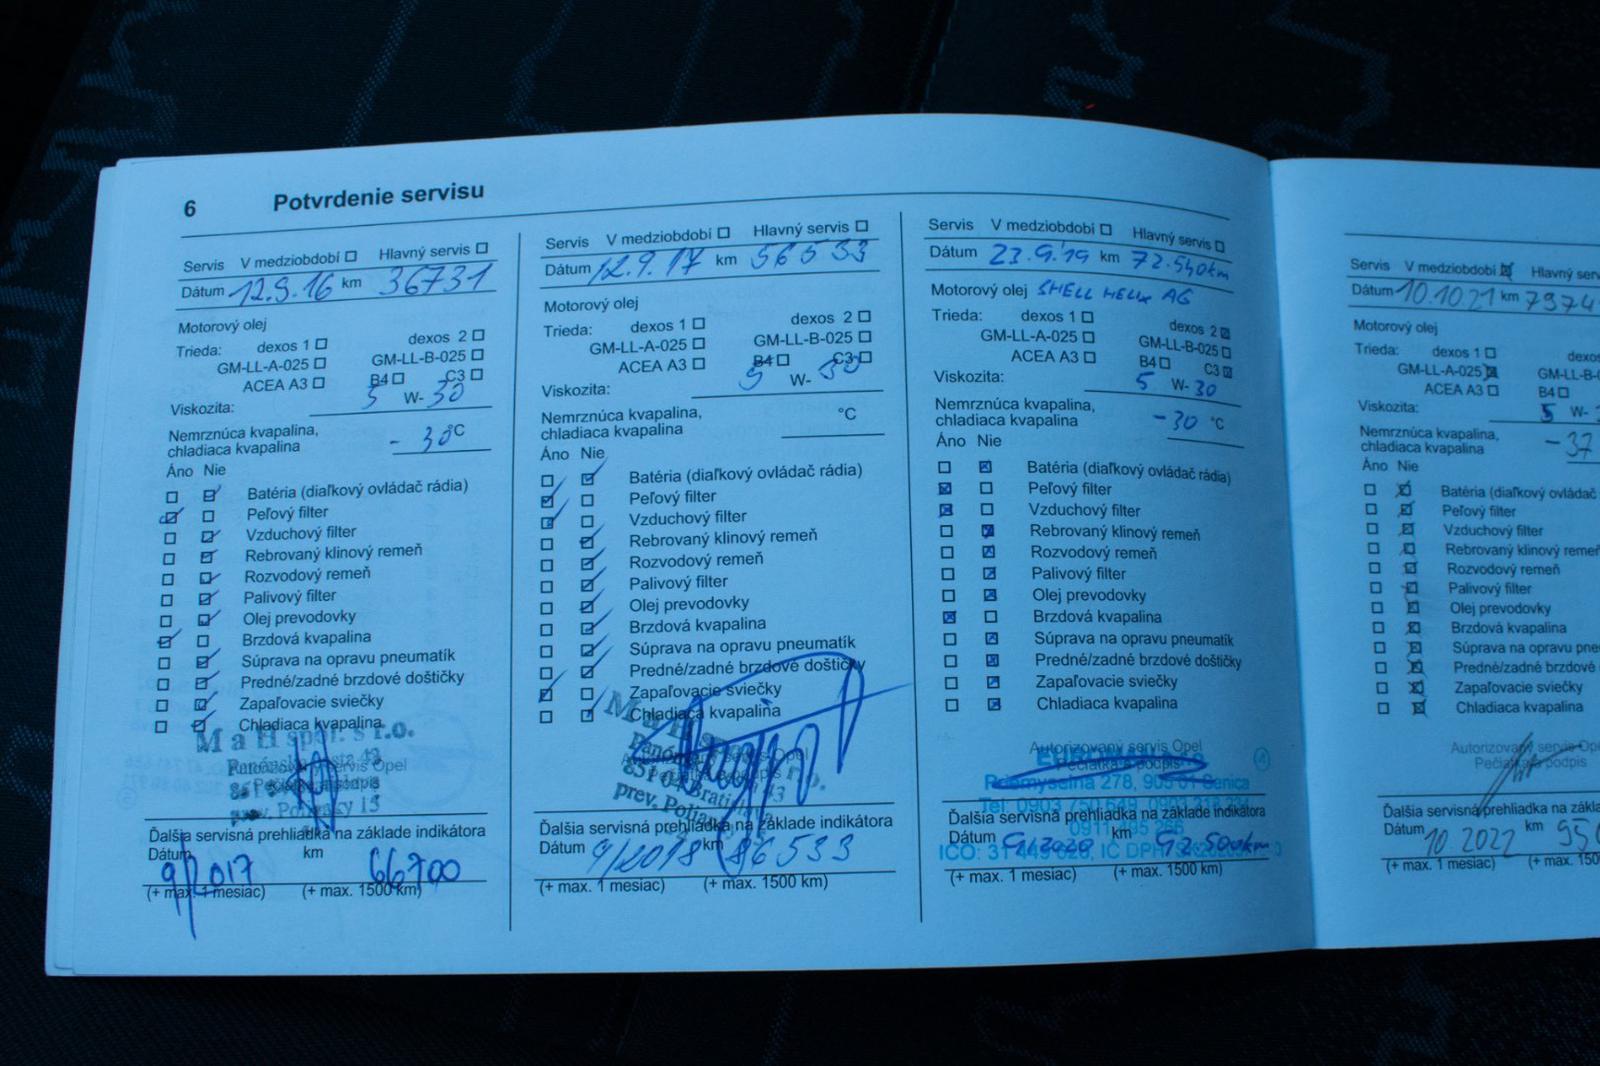 6 Potvrdenie servisu
Servis V medziobdobí Hlavný servis
Dátum 12.9.16 km 36731
Motorový olej
Trieda: dexos 1 dexos 2
GM-LL-A-025 GM-LL-B-025
ACEA A3 B4 C3
Viskozita: 5 W-30
Nemrznúca kvapalina,
chladiaca kvapalina - 30 °C
Áno Nie
Batéria (diaľkový ovládač rádia)
Peľový filter
Vzduchový filter
Rebrovaný klinový remeň
Rozvodový remeň
Palivový filter
Olej prevodovky
Brzdová kvapalina
Súprava na opravu pneumatík
Predné/zadné brzdové doštičky
Zapaľovacie sviečky
Chladiaca kvapalina
M a H spol. s r.o.
Ďalšia servisná prehliadka na základe indikátora
Dátum km
9/2017 66700
(+ max. 1 mesiac) (+ max. 1500 km)
Servis V medziobdobí Hlavný servis
Dátum 12.9.17 km 56533
Motorový olej
Trieda: dexos 1 dexos 2
GM-LL-A-025 GM-LL-B-025
ACEA A3 B4 C3
Viskozita: 5 W-30
Nemrznúca kvapalina, °C
chladiaca kvapalina
Áno Nie
Batéria (diaľkový ovládač rádia)
Peľový filter
Vzduchový filter
Rebrovaný klinový remeň
Rozvodový remeň
Palivový filter
Olej prevodovky
Brzdová kvapalina
Súprava na opravu pneumatík
Predné/zadné brzdové doštičky
Zapaľovacie sviečky
Chladiaca kvapalina
M a H
851 04
Ďalšia servisná prehliadka na základe indikátora
Dátum 9/2018 km 86533
(+ max. 1 mesiac) (+ max. 1500 km)
Servis V medziobdobí Hlavný servis
Dátum 23.9.19 km 72.540km
Motorový olej SHELL HELIX AG
Trieda: dexos 1 dexos 2
GM-LL-A-025 GM-LL-B-025
ACEA A3 B4 C3
Viskozita: 5 W-30
Nemrznúca kvapalina,
chladiaca kvapalina -30 °C
Áno Nie
Batéria (diaľkový ovládač rádia)
Peľový filter
Vzduchový filter
Rebrovaný klinový remeň
Rozvodový remeň
Palivový filter
Olej prevodovky
Brzdová kvapalina
Súprava na opravu pneumatík
Predné/zadné brzdové doštičky
Zapaľovacie sviečky
Chladiaca kvapalina
Autorizovaný servis Opel
Pečiatka a podpis
Priemyselná 278, 905 01 Senica
Ďalšia servisná prehliadka na základe indikátora
Dátum 9/2020 km
(+ max. 1 mesiac) (+ max. 1500 km)
Servis V medziobdobí Hlavný
Dátum 10.10.21 km 7974
Motorový olej
Trieda: dexos 1
GM-LL-A-025
ACEA A3 B4
Viskozita: 5 W-
Nemrznúca kvapalina,
chladiaca kvapalina -37
Áno Nie
Batéria (diaľkový ovládač
Peľový filter
Vzduchový filter
Rebrovaný klinový remeň
Rozvodový remeň
Palivový filter
Olej prevodovky
Brzdová kvapalina
Súprava na opravu
Predné/zadné brzdové
Zapaľovacie sviečky
Chladiaca kvapalina
Autorizovaný servis Opel
Pečiatka a podpis
Ďalšia servisná prehliadka na
Dátum 10 2022 km
(+ max. 1 mesiac)